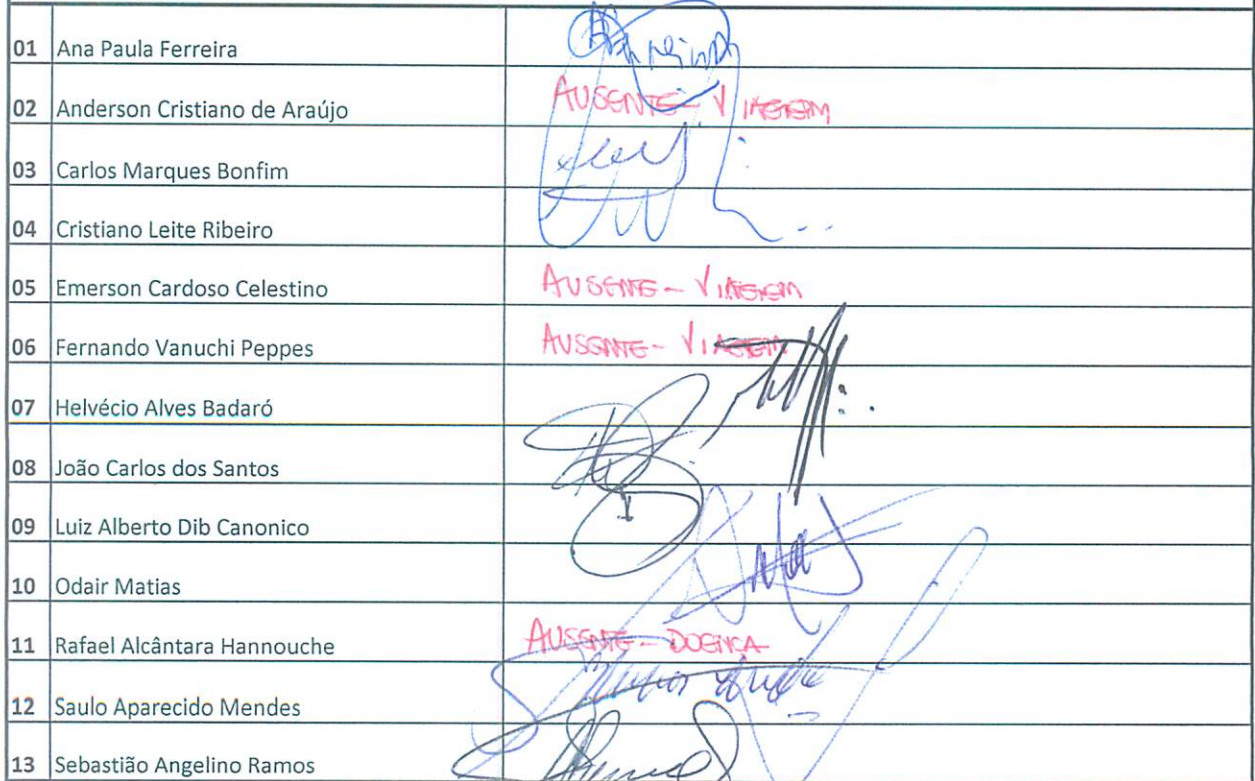 01 Ana Paula Ferreira
02 Anderson Cristiano de Araújo AUSENTE - VIAGEM
03 Carlos Marques Bonfim
04 Cristiano Leite Ribeiro
05 Emerson Cardoso Celestino AUSENTE - VIAGEM
06 Fernando Vanuchi Peppes AUSENTE - VIAGEM
07 Helvécio Alves Badaró
08 João Carlos dos Santos
09 Luiz Alberto Dib Canonico
10 Odair Matias
11 Rafael Alcântara Hannouche AUSENTE - DOENCA
12 Saulo Aparecido Mendes
13 Sebastião Angelino Ramos